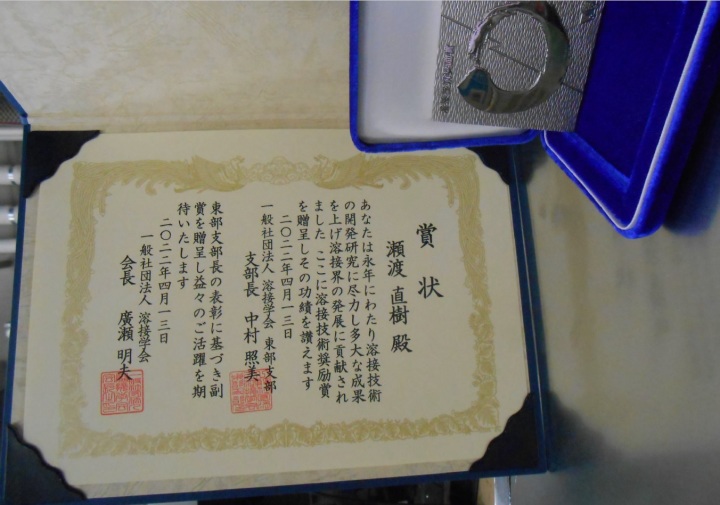 賞状
瀬渡 直樹 殿
あなたは永年にわたり溶接技術
の開発研究に尽力し多大な成果
を上げ溶接界の発展に貢献され
ました ここに溶接技術奨励賞
を贈呈しその功績を讃えます
二〇二二年四月一三日
一般社団法人 溶接学会 東部支部
支部長 中村 照美
東部支部長の表彰に基づき副
賞を贈呈し益々のご活躍を期
待いたします
二〇二二年四月一三日
一般社団法人 溶接学会
会長 廣瀬 明夫